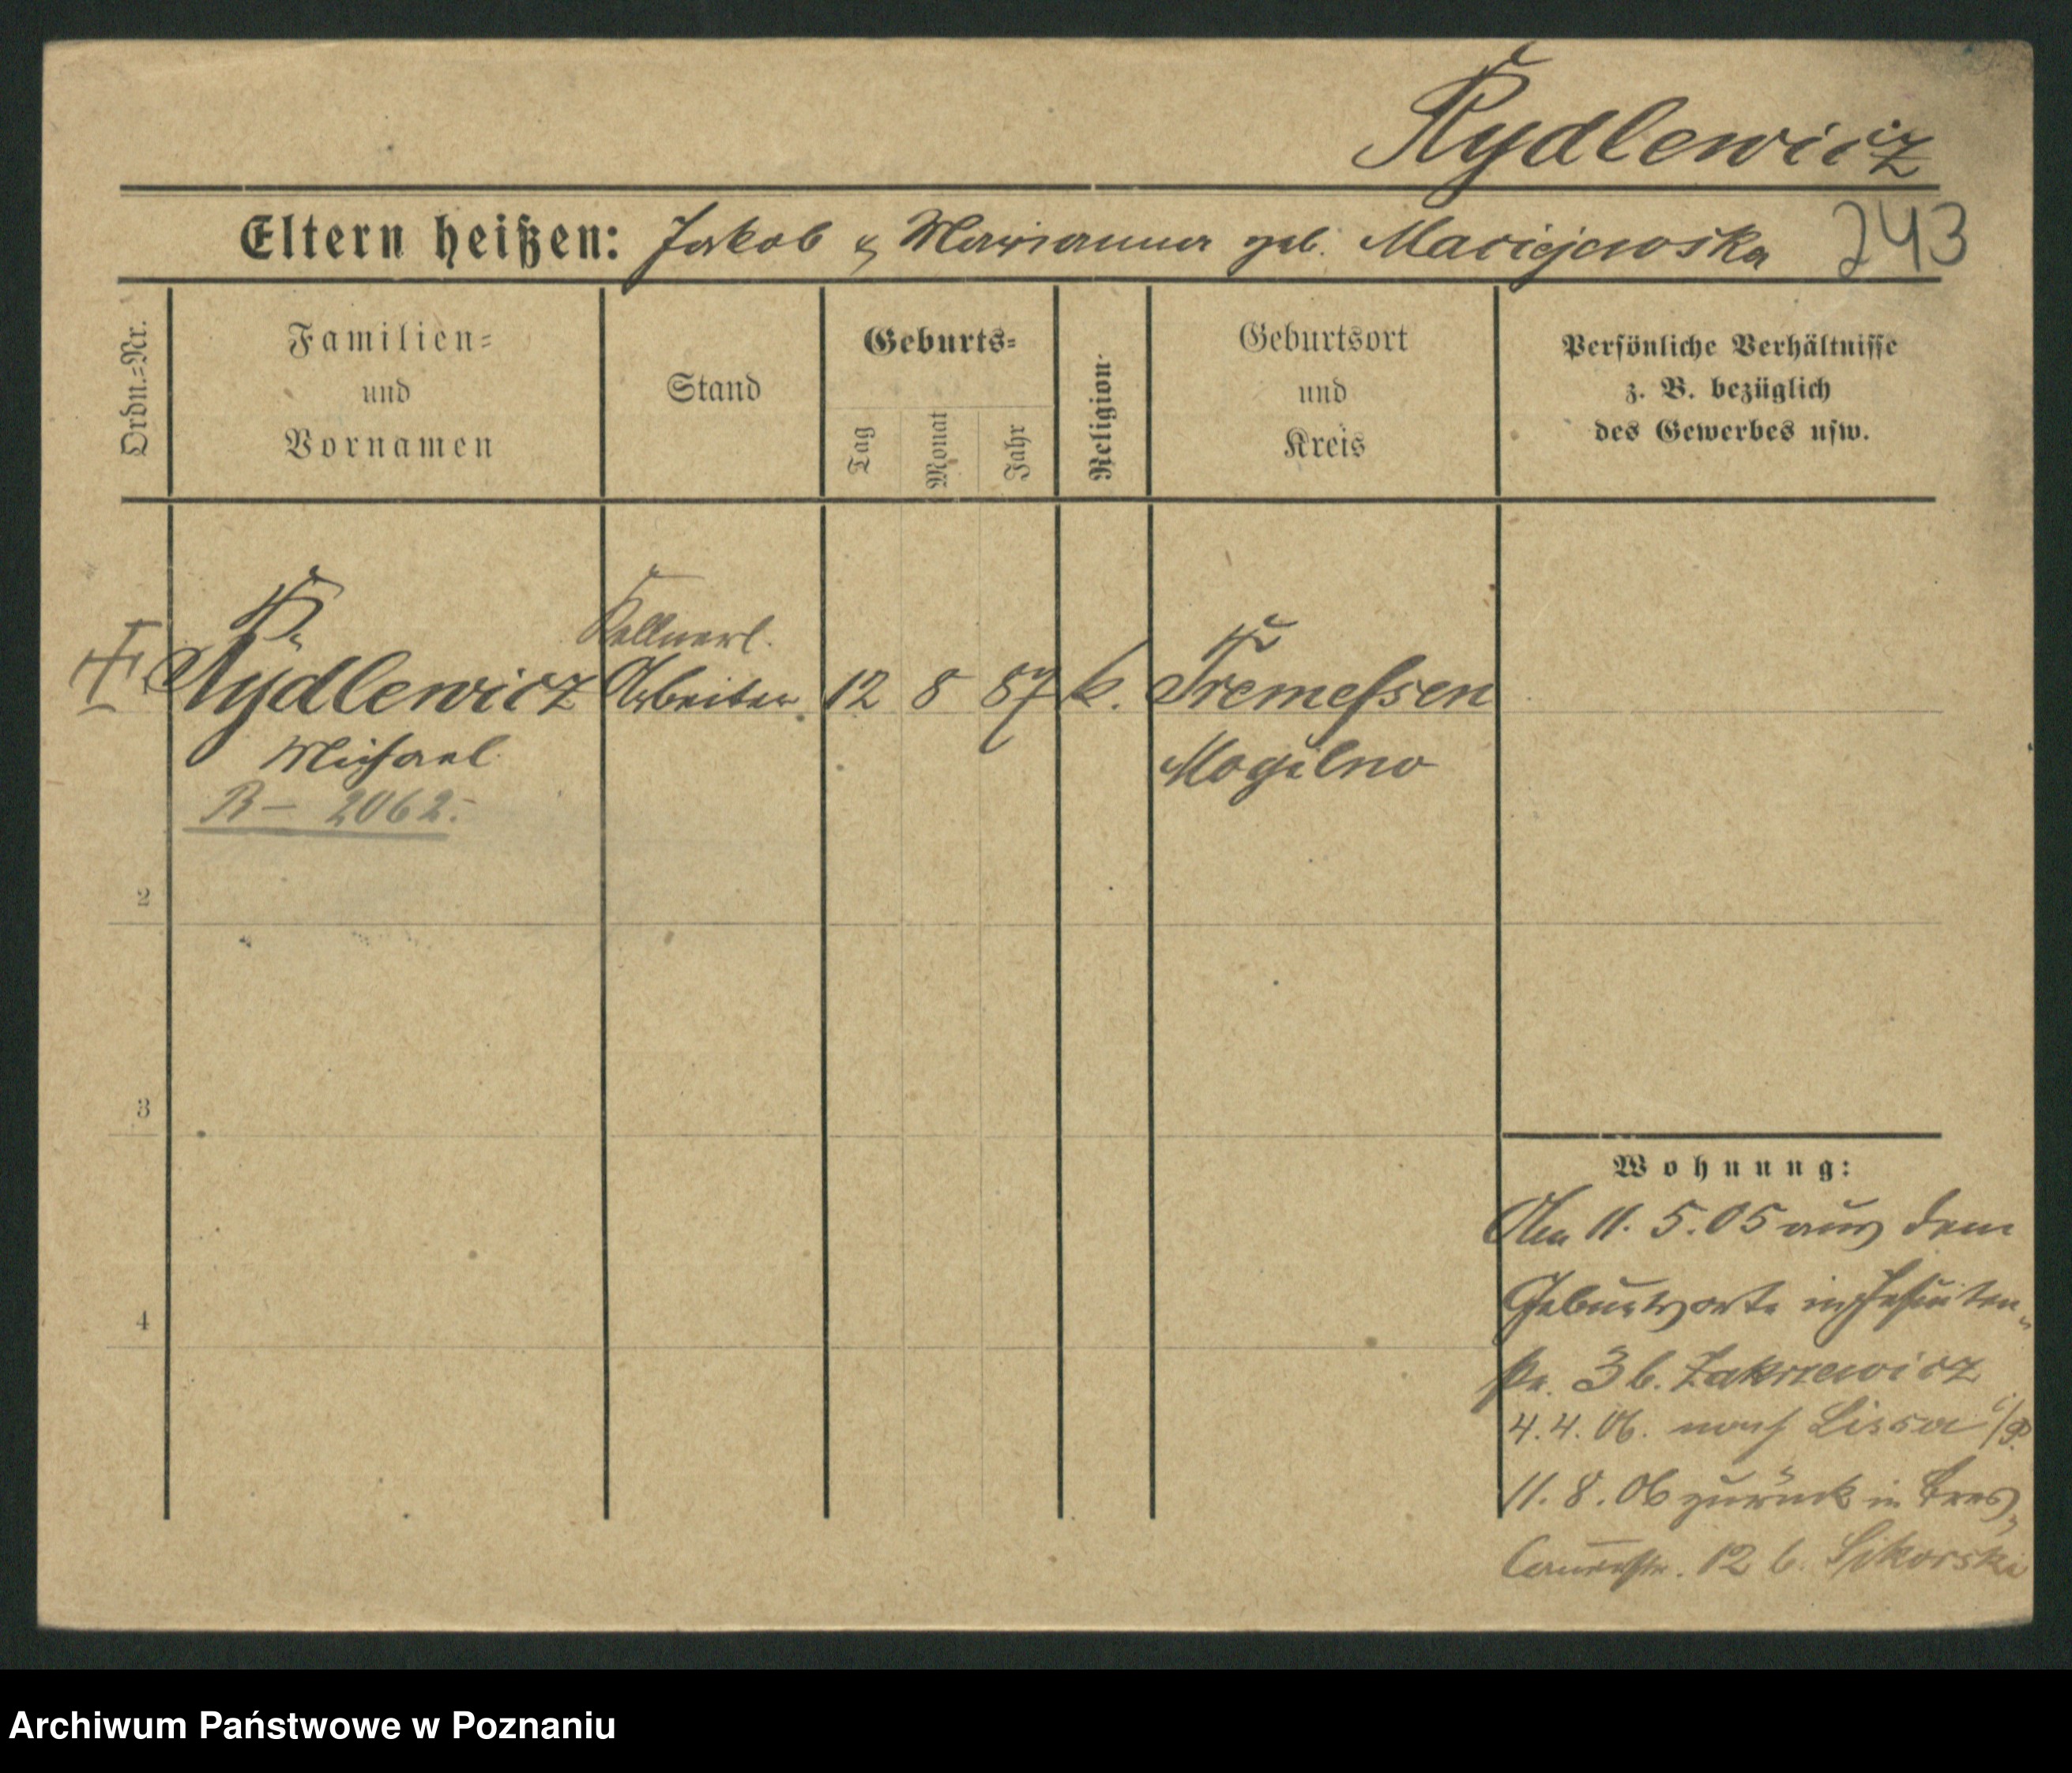 Rydlewicz
Eltern heißen: Jakob & Marianna geb. Maciejewska 243
Ordn.-Nr.
Familien-
und
Vornamen
Stand
Geburts-
Tag
Monat
Jahr
Religion
Geburtsort
und
Kreis
Persönliche Verhältnisse
z. B. bezüglich
des Gewerbes usw.
Kellnerl.
Rydlewicz Arbeiter 12 8 87 k. Tremessen
Michael Mogilno
R – 2062.
2
3
4
Wohnung:
Am 11. 5. 05 aus dem
Geburtsorte in Jesuiten-
str. 3 b. Zakrzewicz
4. 4. 06. nach Lissa i/P.
11. 8. 06 zurück in Bres-
lauerstr. 12 b. Sikorski
Archiwum Państwowe w Poznaniu